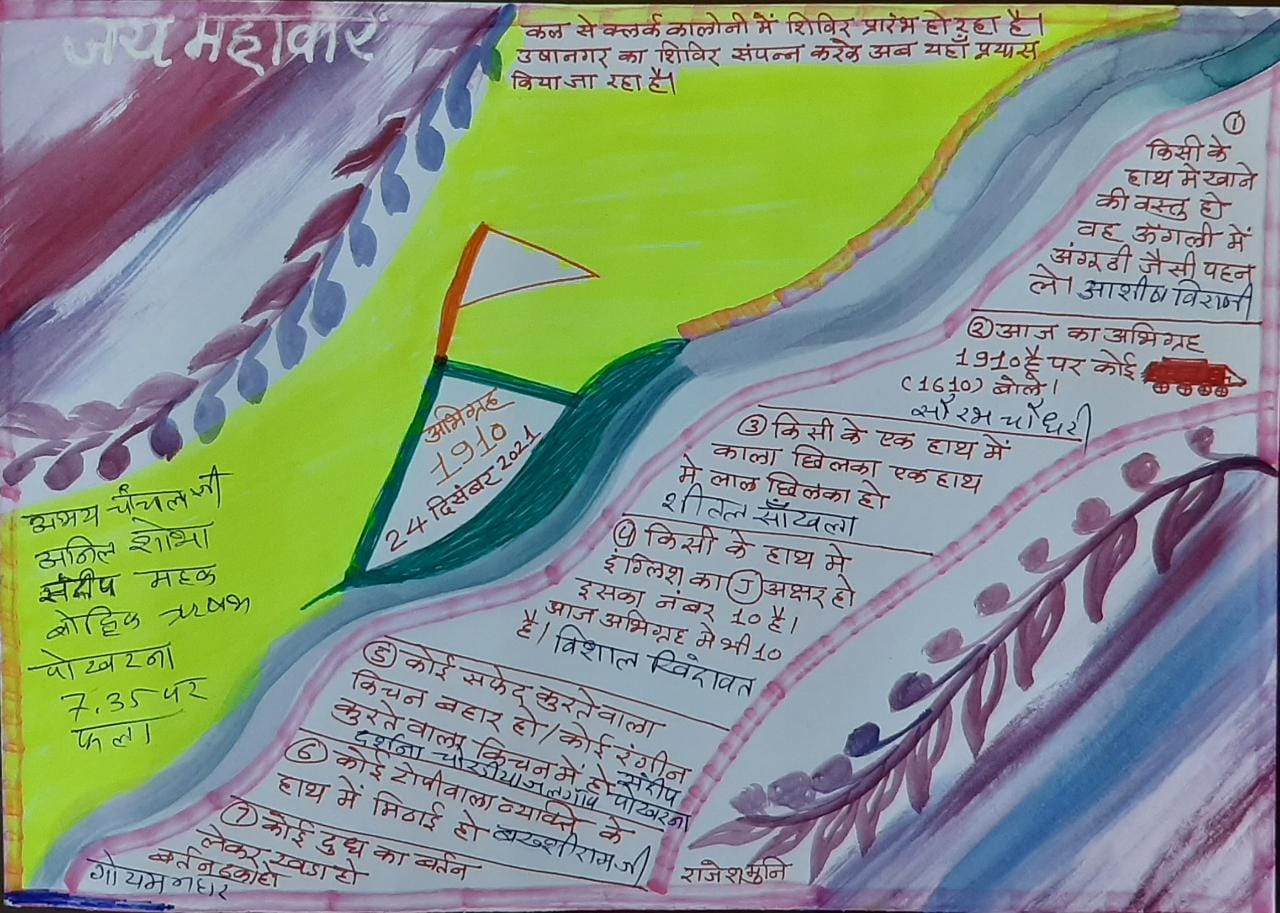 जय महावीर
कल से क्लर्क कालोनी में शिविर प्रारंभ हो रहा है।
उषानगर का शिविर संपन्न करके अब यहाँ प्रयास
किया जा रहा है।
①
किसी के
हाथ मे खाने
की वस्तु हो
वह ऊंगली में
अंगूठी जैसी पहन
ले। आशीष विराणी
② आज का अभिग्रह
1910 है पर कोई
(1610) बोले।
सौरभ चौधरी
③ किसी के एक हाथ में
काला छिलका एक हाथ
मे लाल छिलका हो
शीतल साँखला
④ किसी के हाथ मे
इंग्लिश का J अक्षर हो
इसका नंबर 10 है।
आज अभिग्रह मे भी 10
है। विशाल खिंदावत
⑤ कोई सफेद कुरतेवाला
किचन बहार हो / कोई रंगीन
कुरतेवाला किचन में हो संदीप
दर्शना चोरडीया जलगांव पोखरना
⑥ कोई टोपीवाला व्यक्ति के
हाथ में मिठाई हो बख्शीरामजी
⑦ कोई दुध का बर्तन
लेकर खडा हो
बर्तन ढका हो
गोयम नहार
अभिग्रह
1910
24 दिसंबर 2021
अभय चंचलजी
अनिल शोभा
संदीप महक
ऋषभ
पोखरना
7.35 पर
फला
राजेशमुनि